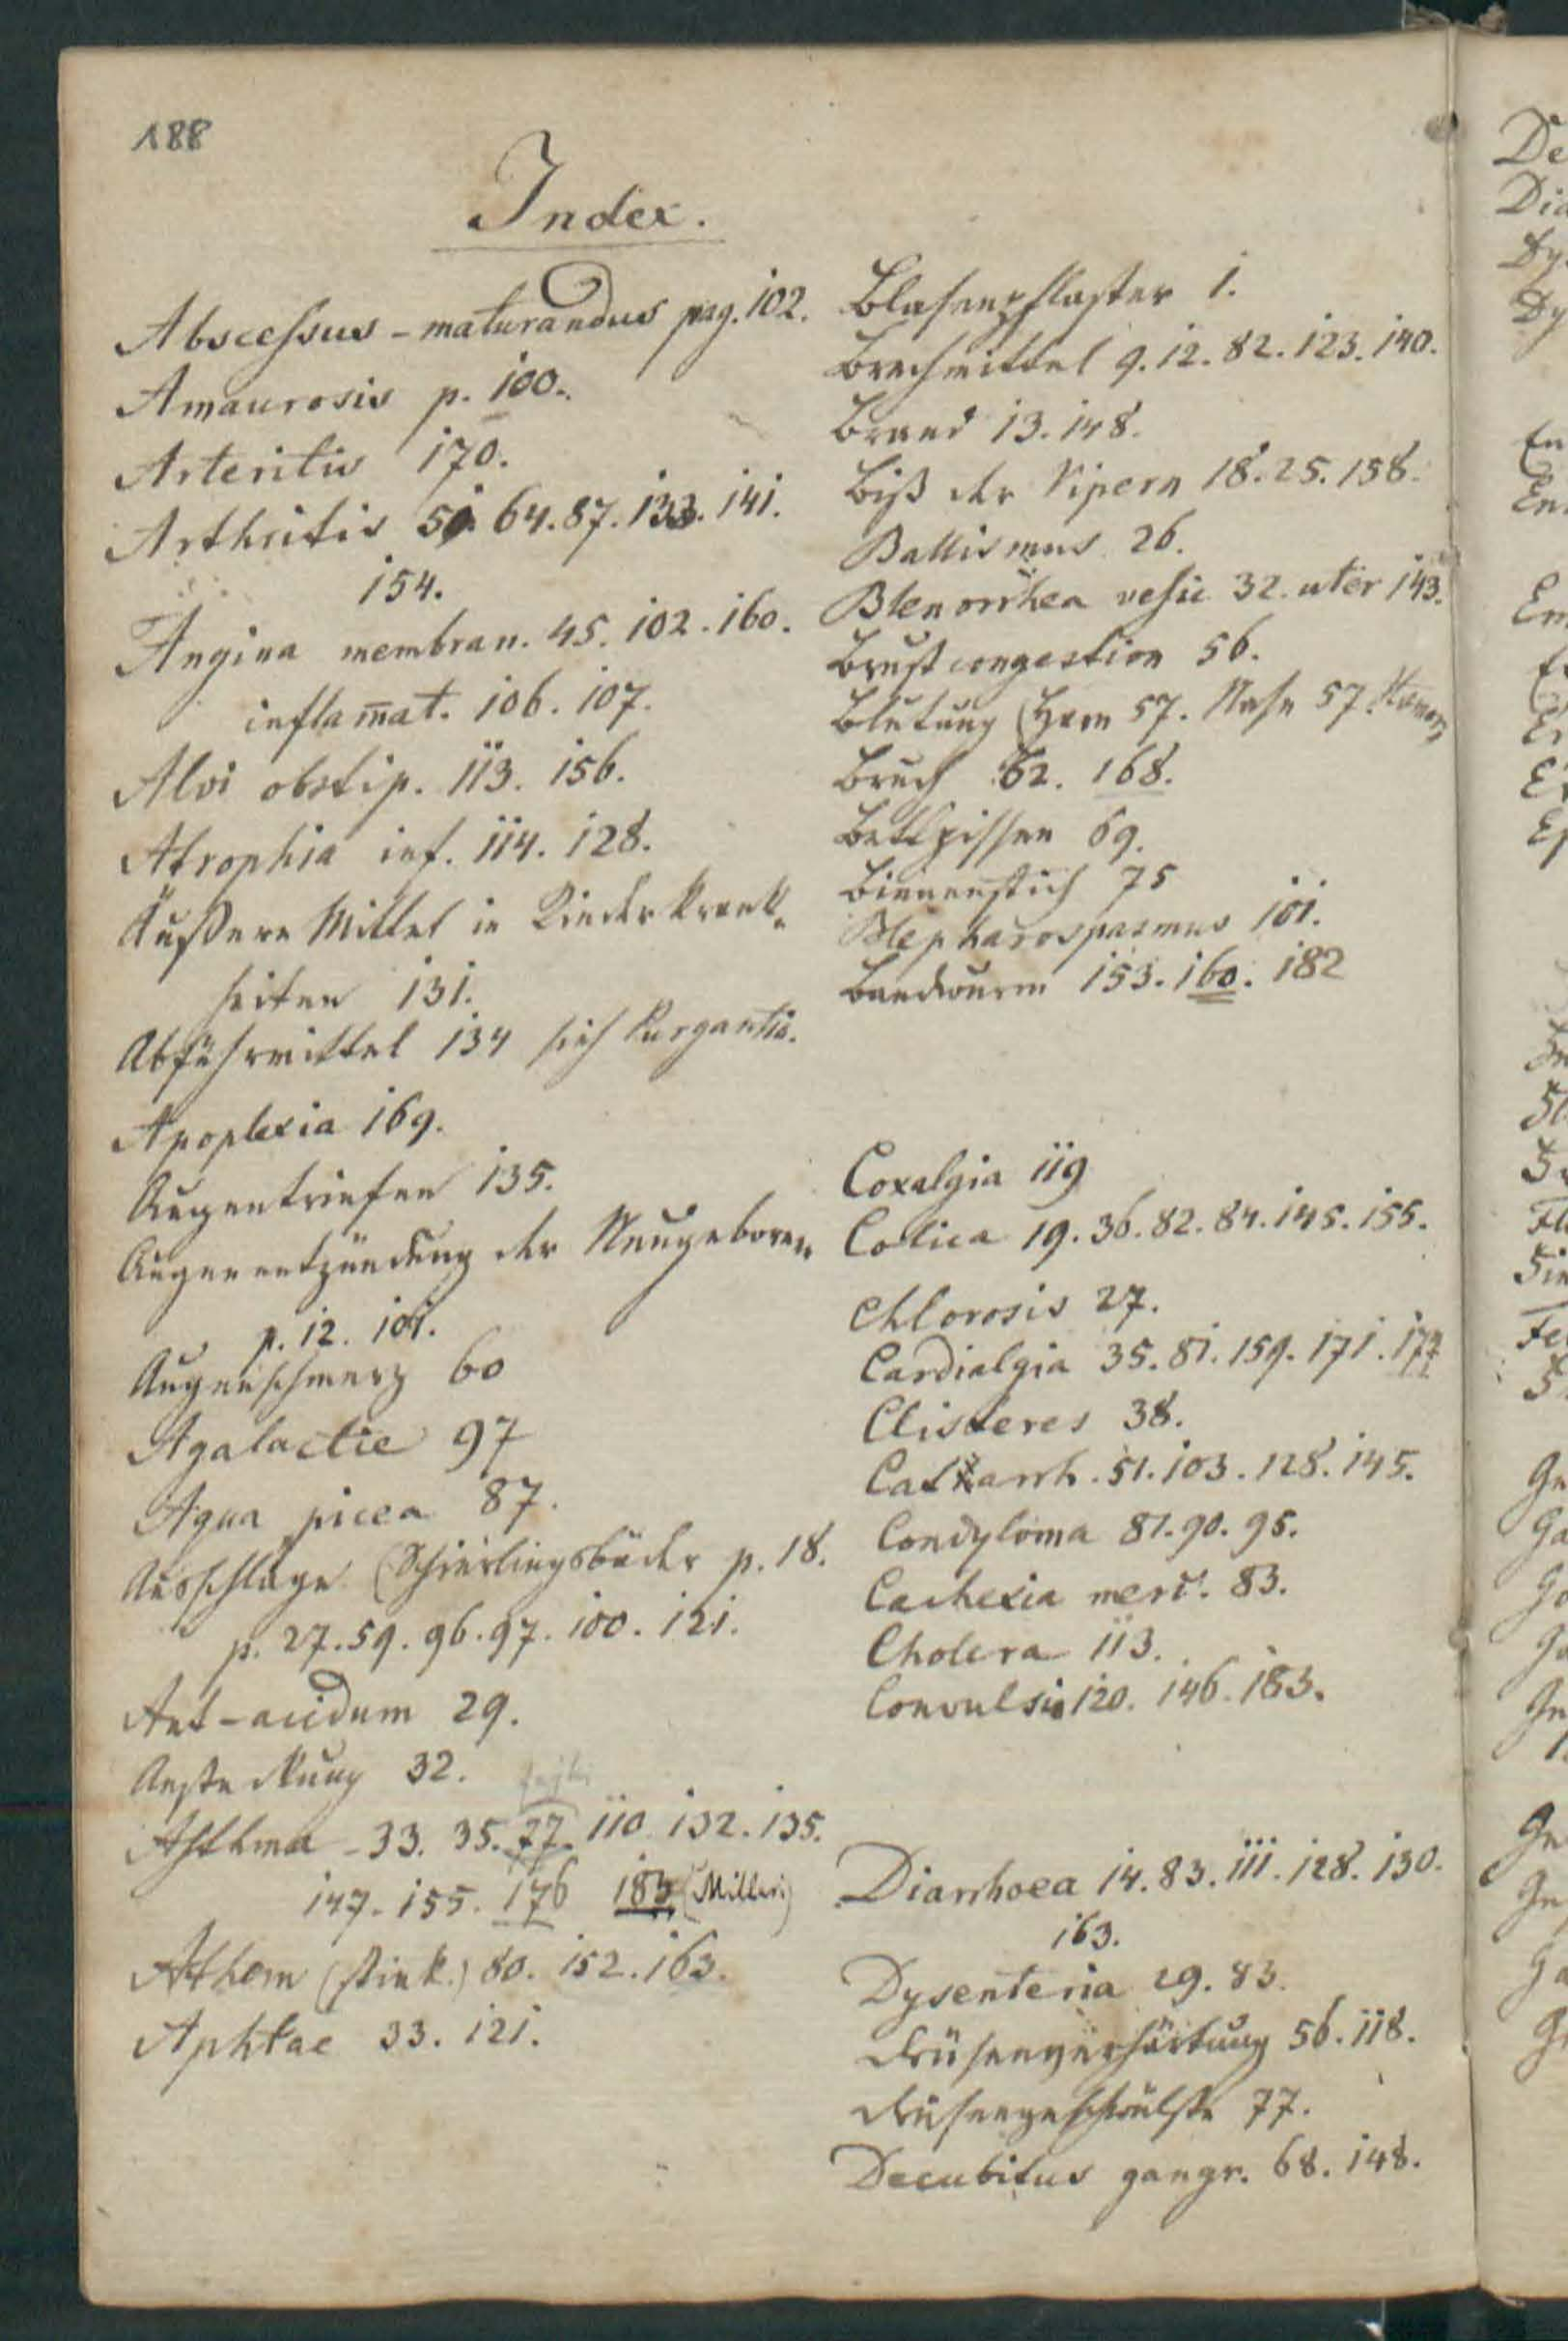 188
Index.
Abscessus - maturandus pag. 102.
Amaurosis p. 100.
Arteritis 170.
Arthritis 51. 64. 87. 133. 141.
154.
Angina membran. 45. 102. 160.
inflam̅at. 106. 107.
Alvi obstip. 113. 156.
Atrophia inf. 114. 128.
Äußere Mittel in Kinderkrank-
heiten 131.
Abführmittel 134 sieh Purgantia.
Apoplexia 169.
Augentriefen 135.
Augenentzündung der Neugeboren
p. 12. 101.
Augenschmerz 60
Agalactie 97
Aqua picea 87.
Ausschläge (Schierlingsbäder p. 18.
p. 27. 59. 96. 97. 100. 121.
Ant-acidum 29.
Ansteckung 32.
Asthma - 33. 35. 77. 110. 132. 135.
147. 155. 176 183 (Milleri)
Athem (stink.) 80. 152. 163.
Aphtae 33. 121.
Blasenpflaster 1.
Brechmittel 9. 12. 82. 123. 140.
Brand 13. 148.
Biß der Vipern 18. 25. 158.
Ballismus 26.
Blenorrhea vesic 32. uter 143.
Brustcongestion 56.
Blutung (Harn 57. Nase 57.
Bruch 62. 168.
Bettpissen 69.
Bienenstich 75
Blepharospasmus 101.
Bandwurm 153. 160. 182
Coxalgia 119
Colica 19. 36. 82. 84. 145. 155.
Chlorosis 27.
Cardialgia 35. 81. 159. 171. 174
Clisteres 38.
Catarrh. 51. 103. 128. 145.
Condyloma 81. 90. 95.
Cachexia merc. 83.
Cholera 113.
Convulsio 120. 146. 183.
Diarrhoea 14. 83. 111. 128. 130.
163.
Dysenteria 29. 83.
Drüsenverhärtung 56. 118.
Drüsengeschwülste 77.
Decubitus gangr. 68. 148.